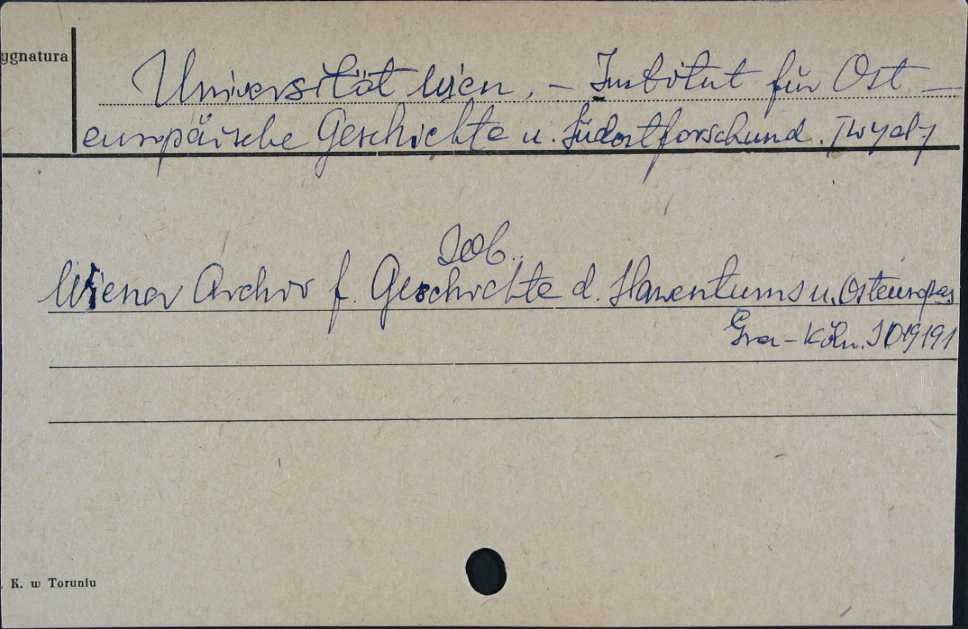 ygnatura
Universität Wien. - Institut für Ost-
europäische Geschichte u. Südostforschund.
zob.
Wiener Archiv f. Geschichte d. Slawentums u. Osteuropas
Graz - Köln.
K. w Toruniu